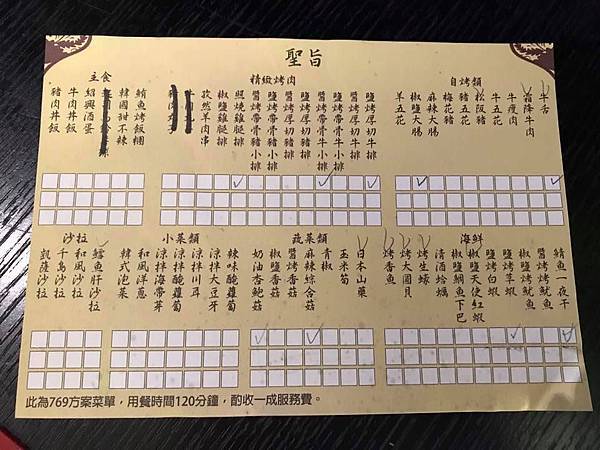 聖旨
自烤類
牛舌
霜降牛肉
牛瘦肉
牛五花
松阪豬
豬五花
梅花豬
麻辣大腸
椒鹽大腸
羊五花
精緻烤肉
鹽烤厚切牛排
醬烤厚切牛排
鹽烤帶骨牛小排
醬烤帶骨牛小排
鹽烤厚切豬排
醬烤厚切豬排
鹽烤帶骨豬小排
醬烤帶骨豬小排
照燒雞腿排
椒鹽雞腿排
孜然羊肉串
主食
鮪魚烤飯糰
韓國甜不辣
紹興酒蛋
牛肉丼飯
豬肉丼飯
海鮮
鯖魚一夜干
醬烤魷魚
椒鹽魷魚
鹽烤草蝦
鹽烤白蝦
椒鹽天使紅蝦
椒鹽鯛魚下巴
清酒蛤蠣
烤生蠔
烤大圓貝
烤香魚
蔬菜類
日本山藥
玉米筍
青椒
麻辣綜合菇
醬烤香菇
椒鹽香菇
奶油杏鮑菇
小菜類
辣味醃蘿蔔
涼拌大豆牙
涼拌川耳
涼拌醃蘿蔔
涼拌海帶芽
和風洋蔥
韓式泡菜
沙拉
鱈魚肝沙拉
和風沙拉
千島沙拉
凱薩沙拉
此為769方案菜單，用餐時間120分鐘，酌收一成服務費。